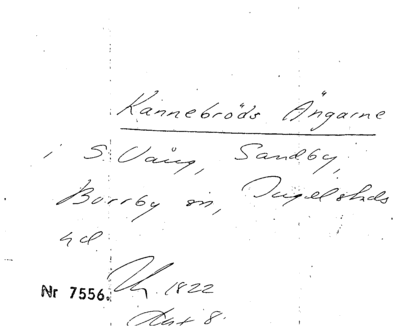 Kannebröds Ängarne
i S. Vång, Sandby,
Borrby sn, Ingelstads
hd
Nr 7556. 1822
8.